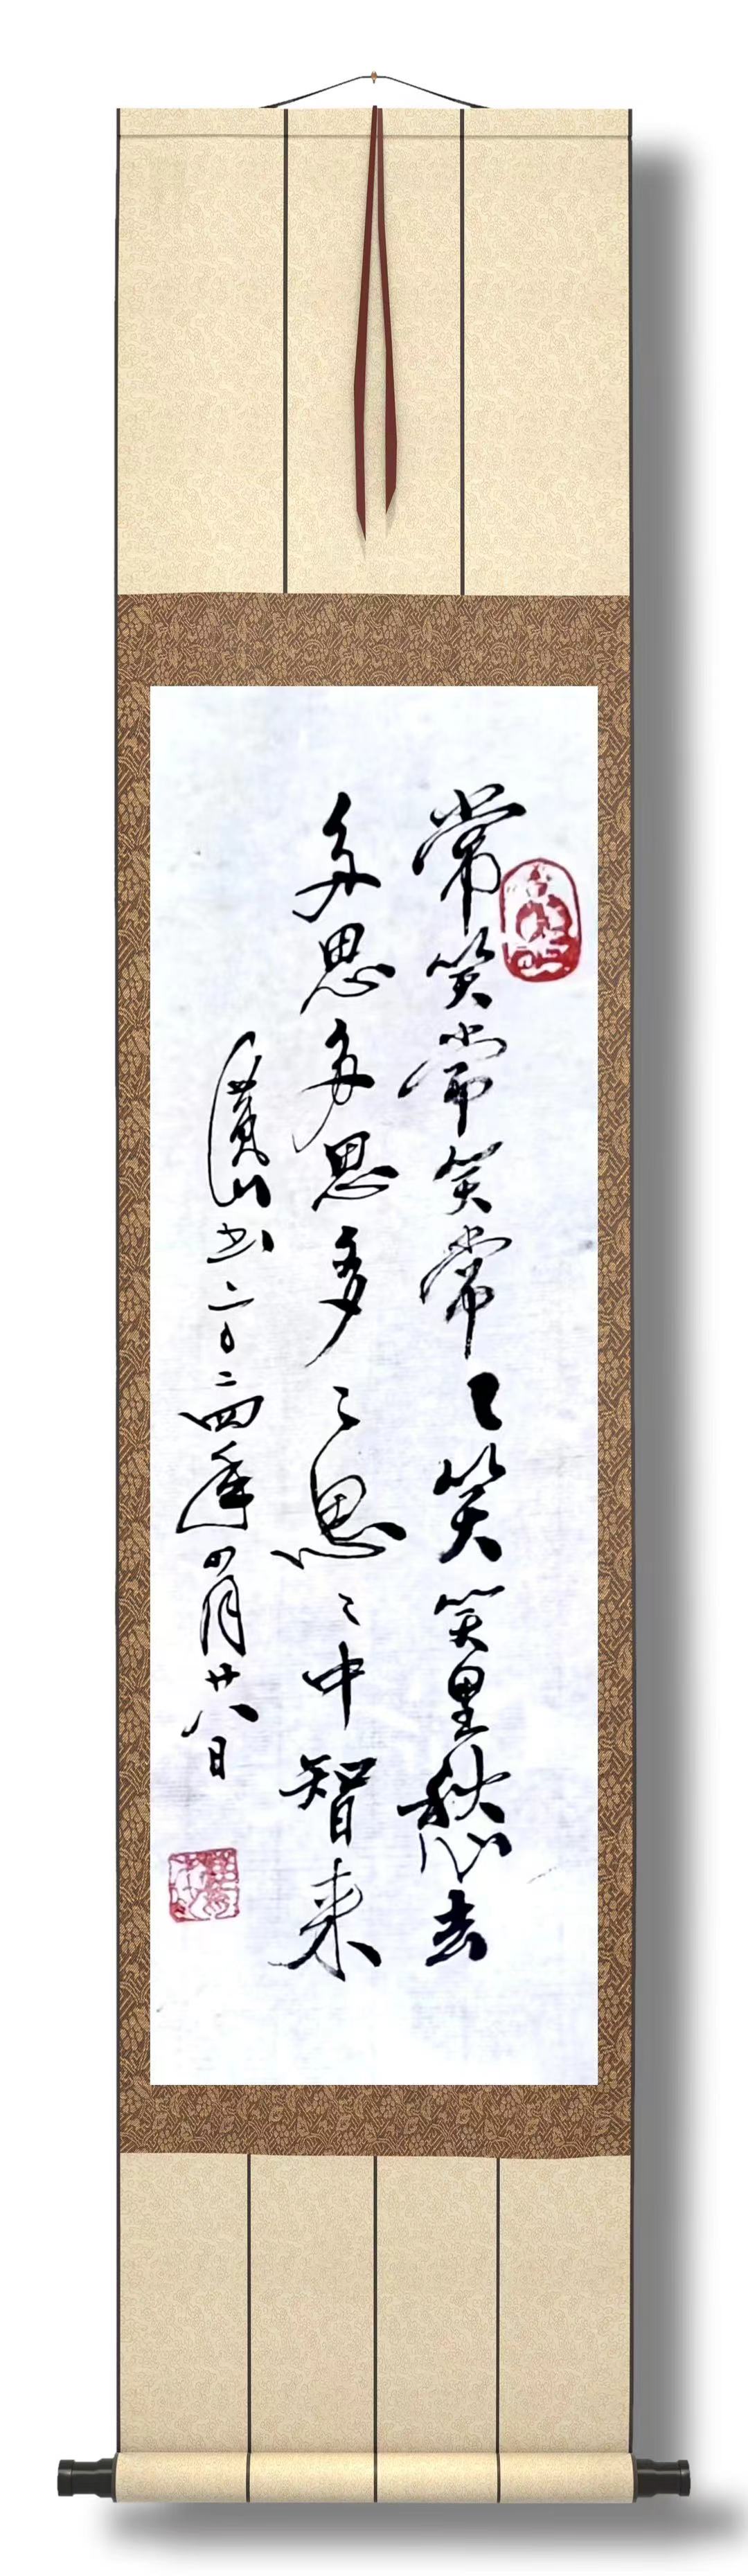 常笑常笑常〻笑笑里愁去
多思多思多〻思〻中智来
山书二〇二四年四月廿八日